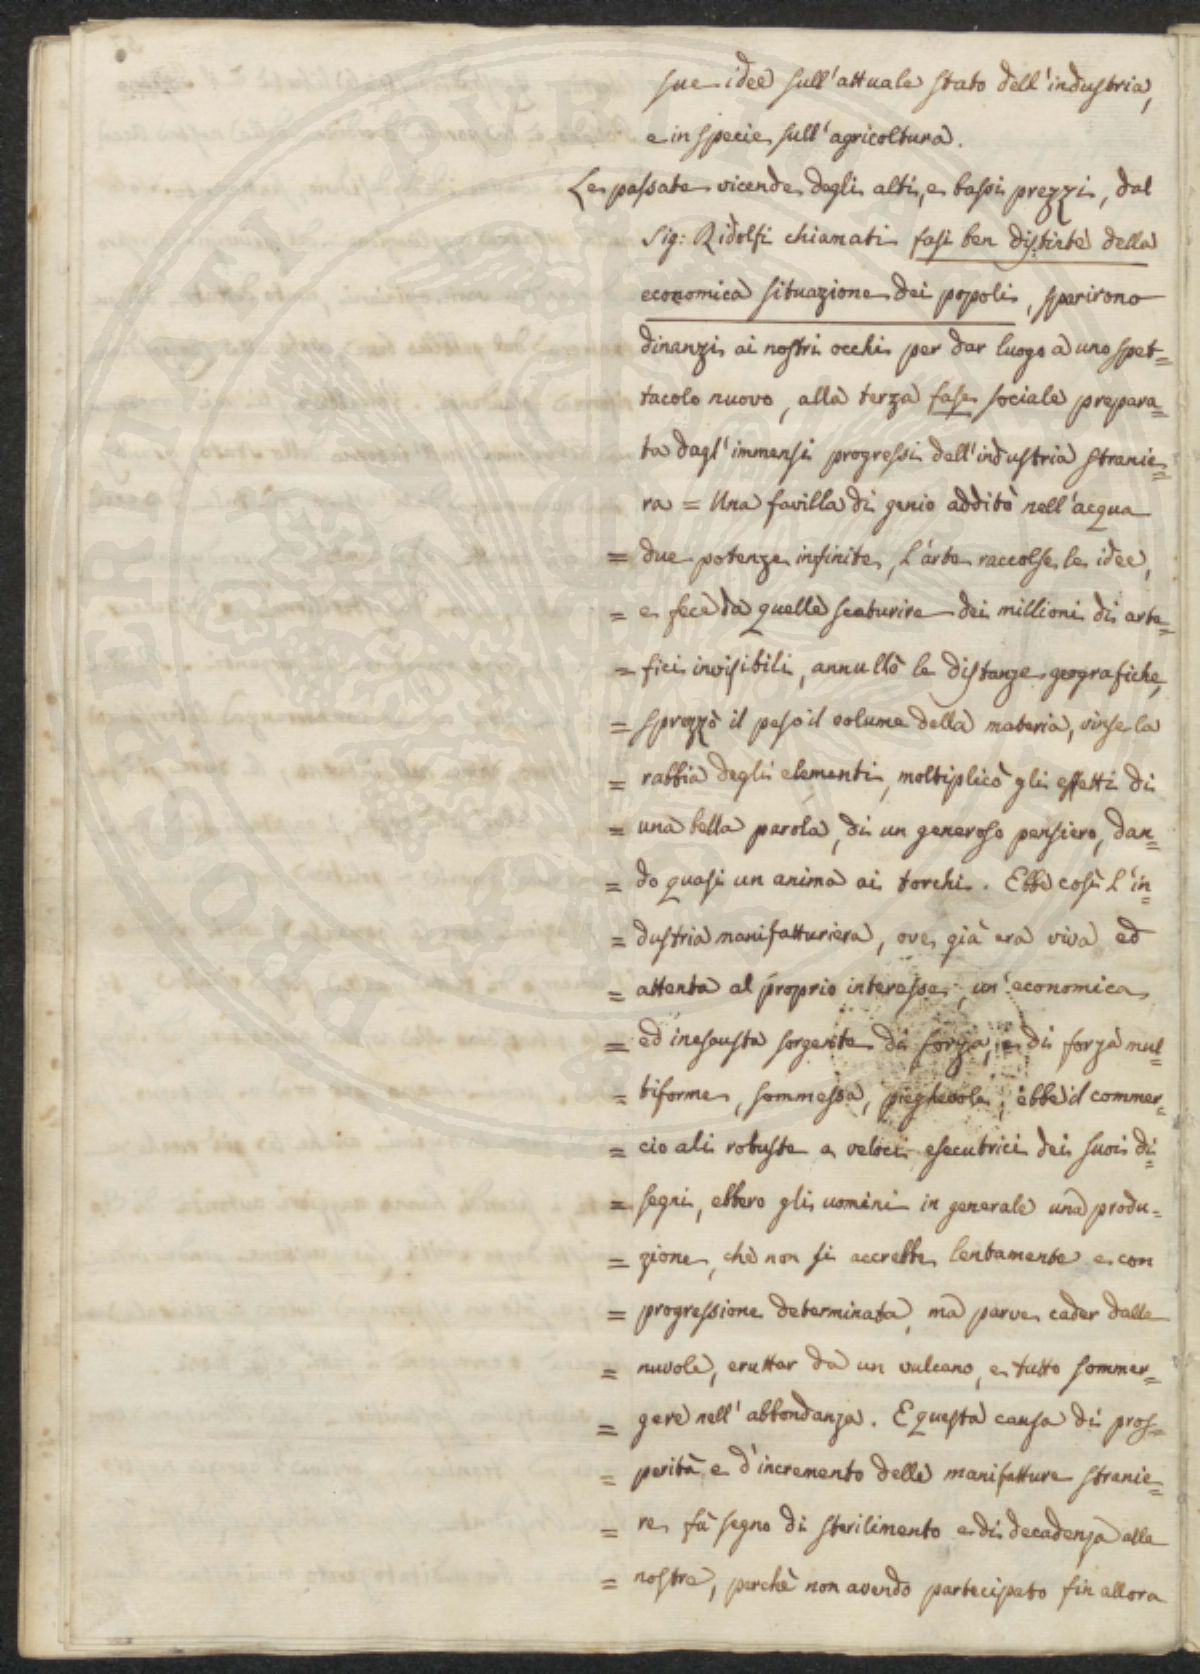 sue idee sull'attuale stato dell'industria,
e in specie sull'agricoltura.
Le passate vicende degli alti, e bassi prezzi, dal
Sig: Ridolfi chiamati fasi ben distinte della
economica situazione dei popoli, sparirono
dinanzi ai nostri occhi per dar luogo a uno spet=
tacolo nuovo, alla terza fase sociale prepara=
ta dagl'immensi progressi dell'industria stranie=
ra = Una favilla di genio additò nell'acqua
= due potenze infinite, l'arte raccolse le idee,
= e fece da quelle scaturire dei millioni di arte=
= fici invisibili, annullò le distanze geografiche,
= sprezzò il peso il volume della materia, vinse la
= rabbia degli elementi, moltiplicò gli effetti di
= una bella parola, di un generoso pensiero, dan=
= do quasi un anima ai torchi. Ebbe così l'in=
= dustria manifatturiera, ove già era viva ed
= attenta al proprio interesse, un'economica
= ed inesausta sorgente di forza, e di forza mul=
= tiforme, sommessa, pieghevole; ebbe il commer=
= cio ali robuste e veloci esecutrici dei suoi di=
= segni, ebbero gli uomini in generale una produ=
= zione, che non si accrebbe lentamente e con
= progressione determinata, ma parve cader dalle
= nuvole, eruttar da un vulcano, e tutto sommer=
= gere nell'abbondanza. E questa causa di pros=
= perità e d'incremento delle manifatture stranie=
= re fà segno di sterilimento e di decadenza alle
= nostre, perchè non avendo partecipato fin allora
POSSE
RINI TI PUBLICA